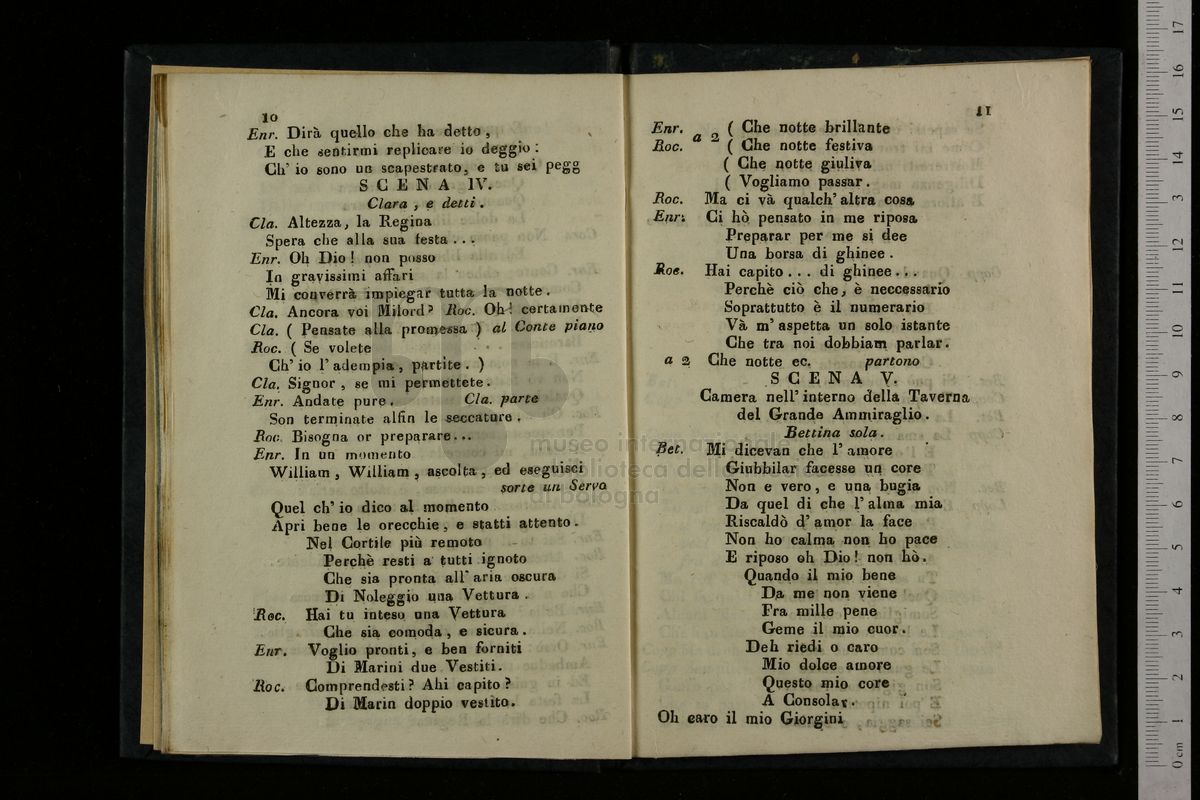 10
Enr. Dirà quello che ha detto,
E che sentirmi replicare io deggio:
Ch' io sono un scapestrato, e tu sei pegg
SCENA IV.
Clara, e detti.
Cla. Altezza, la Regina
Spera che alla sua festa...
Enr. Oh Dio! non posso
In gravissimi affari
Mi converrà impiegar tutta la notte.
Cla. Ancora voi Milord? Roc. Oh! certamente
Cla. ( Pensate alla promessa ) al Conte piano
Roc. ( Se volete
Ch' io l' adempia, partite. )
Cla. Signor, se mi permettete.
Enr. Andate pure. Cla. parte
Son terminate alfin le seccature.
Roc. Bisogna or preparare...
Enr. In un momento
William, William, ascolta, ed eseguisci
sorte un Servo
Quel ch' io dico al momento
Apri bene le orecchie, e statti attento.
Nel Cortile più remoto
Perchè resti a tutti ignoto
Che sia pronta all' aria oscura
Di Noleggio una Vettura.
Roc. Hai tu inteso una Vettura
Che sia comoda, e sicura.
Enr. Voglio pronti, e ben forniti
Di Marini due Vestiti.
Roc. Comprendesti? Ahi capito?
Di Marin doppio vestito.
11
Enr. ( Che notte brillante
Roc. a 2 ( Che notte festiva
( Che notte giuliva
( Vogliamo passar.
Roc. Ma ci và qualch' altra cosa
Enr. Ci hò pensato in me riposa
Preparar per me si dee
Una borsa di ghinee.
Roc. Hai capito... di ghinee...
Perchè ciò che, è neccessario
Soprattutto è il numerario
Và m' aspetta un solo istante
Che tra noi dobbiam parlar.
a 2 Che notte ec. partono
SCENA V.
Camera nell' interno della Taverna
del Grande Ammiraglio.
Bettina sola.
Bet. Mi dicevan che l' amore
Giubbilar facesse un core
Non e vero, e una bugia
Da quel di che l' alma mia
Riscaldò d' amor la face
Non ho calma non ho pace
E riposo oh Dio! non hò.
Quando il mio bene
Da me non viene
Fra mille pene
Geme il mio cuor.
Deh riedi o caro
Mio dolce amore
Questo mio core
A Consolar.
Oh caro il mio Giorgini
museo internazionale
biblioteca della musica
di bologna
0 cm 1 2 3 4 5 6 7 8 9 10 11 12 13 14 15 16 17